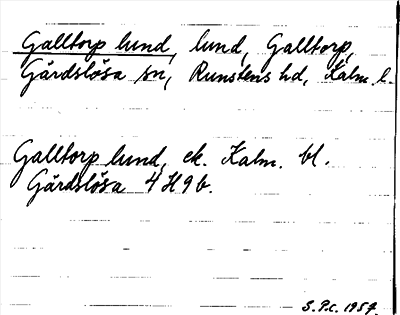 Galltorp lund, lund, Galltorp,
Gårdslösa sn, Runstens hd, Kalm. l.
Galltorp lund, ek. Kalm. bl.
Gårdslösa 4 H 9 b.
S.P.c. 1957.